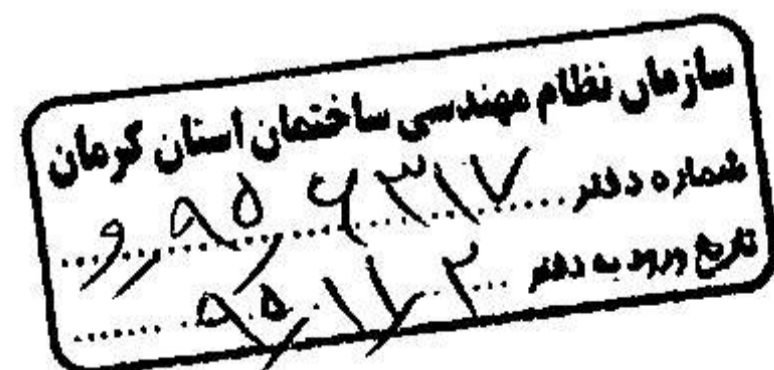 سازمان نظام مهندسی ساختمان استان کرمان
شماره دفتر ۶۳۱۷/۹۵/و
تاریخ ورود به دفتر ۹۵/۱۱/۲